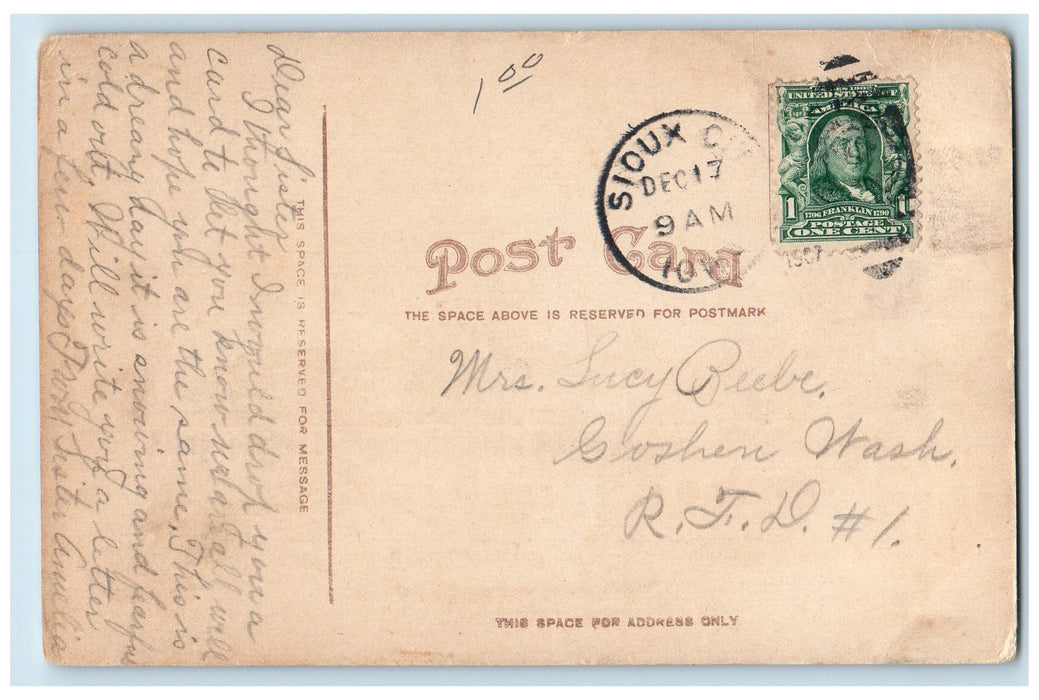 1 00
SIOUX C
DEC 17
9 AM
IOW
1907
UNITED STATES OF
AMERICA
1 1
1706 FRANKLIN 1790
POSTAGE
ONE CENT
Post Card
THE SPACE ABOVE IS RESERVED FOR POSTMARK
Mrs. Lucy Beebe,
Goshen Wash.
R.F.D. #1.
THIS SPACE FOR ADDRESS ONLY.
THIS SPACE IS RESERVED FOR MESSAGE
Dear Sister
I thought I would drop you a
card to let you know we are all well
and hope you are the same, This is
a dreary day it is snowing and
cold out, Will write you a letter
in a few days From Sister Amelia